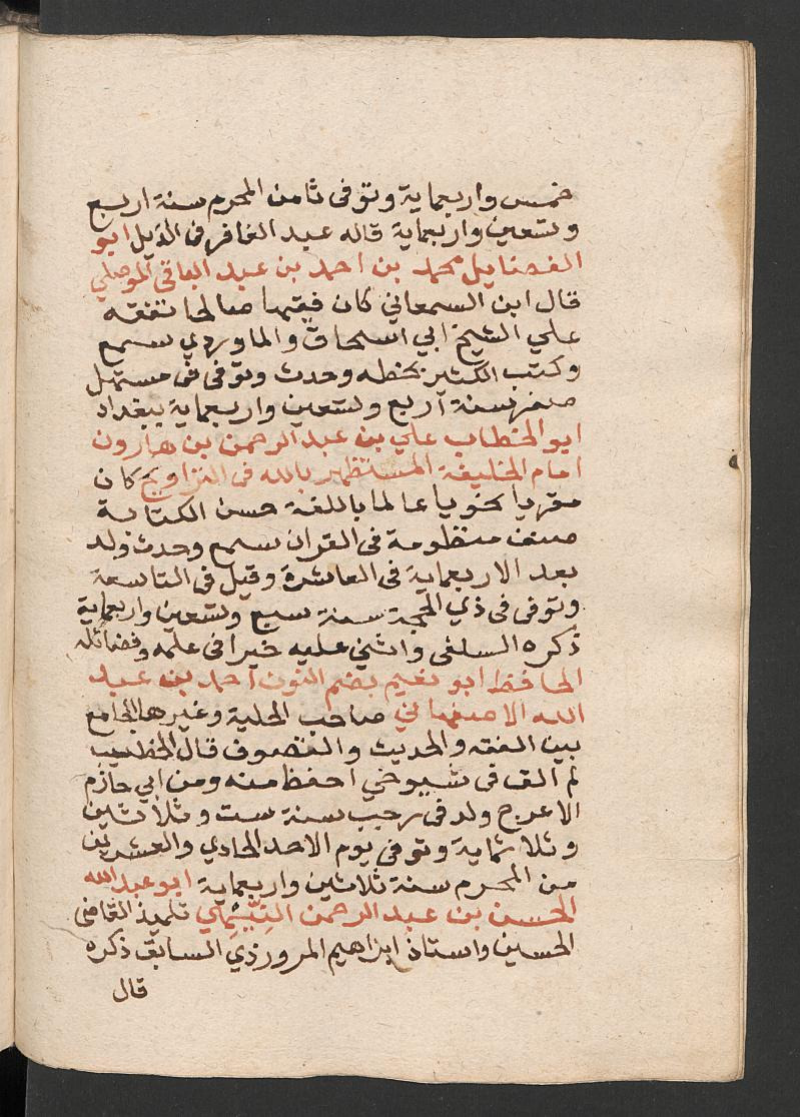 خمس واربعماية وتوفى ثامن المحرم سنة اربع
وتسعين واربعماية قاله عبد الغافر فى الذيل ابو
الفضايل محمد بن احمد بن عبد الباقى الموصلي
قال ابن السمعاني كان فقيها صالحا تفقه
علي الشيخ ابي اسحاق والماوردي سمع
وكتب الكثير بخطه وحدث وتوفى فى مستهل
صفر سنة اربع وتسعين واربعماية ببغداد
ابو الخطاب علي بن عبد الرحمن بن هارون
امام الخليفة المستظهر بالله فى التراويح كان
مقريا نحويا عالما باللغة حسن الكتابة
صنف منظومة فى القران سمع وحدث ولد
بعد الاربعماية فى العاشرة وقيل فى التاسعة
وتوفى فى ذي الحجة سنة سبع وتسعين واربعماية
ذكره السلفى واثني عليه خيرا فى علمه وفضائله
الحافظ ابو نعيم بضم النون احمد بن عبد
الله الاصفهاني صاحب الحلية وغيرها الجامع
بين الفقه والحديث والتصوف قال الخطيب
لم الق فى شيوخي احفظ منه ومن ابي حازم
الاعرج ولد فى رجب سنة ست وثلاثين
وثلاثماية وتوفى يوم الاحد الحادي والعشرين
من المحرم سنة ثلاثين واربعماية ابو عبد الله
الحسن بن عبد الرحمن النِيْهِي تلميذ القاضى
الحسين واستاذ ابراهيم المروزذي السابق ذكره
قال